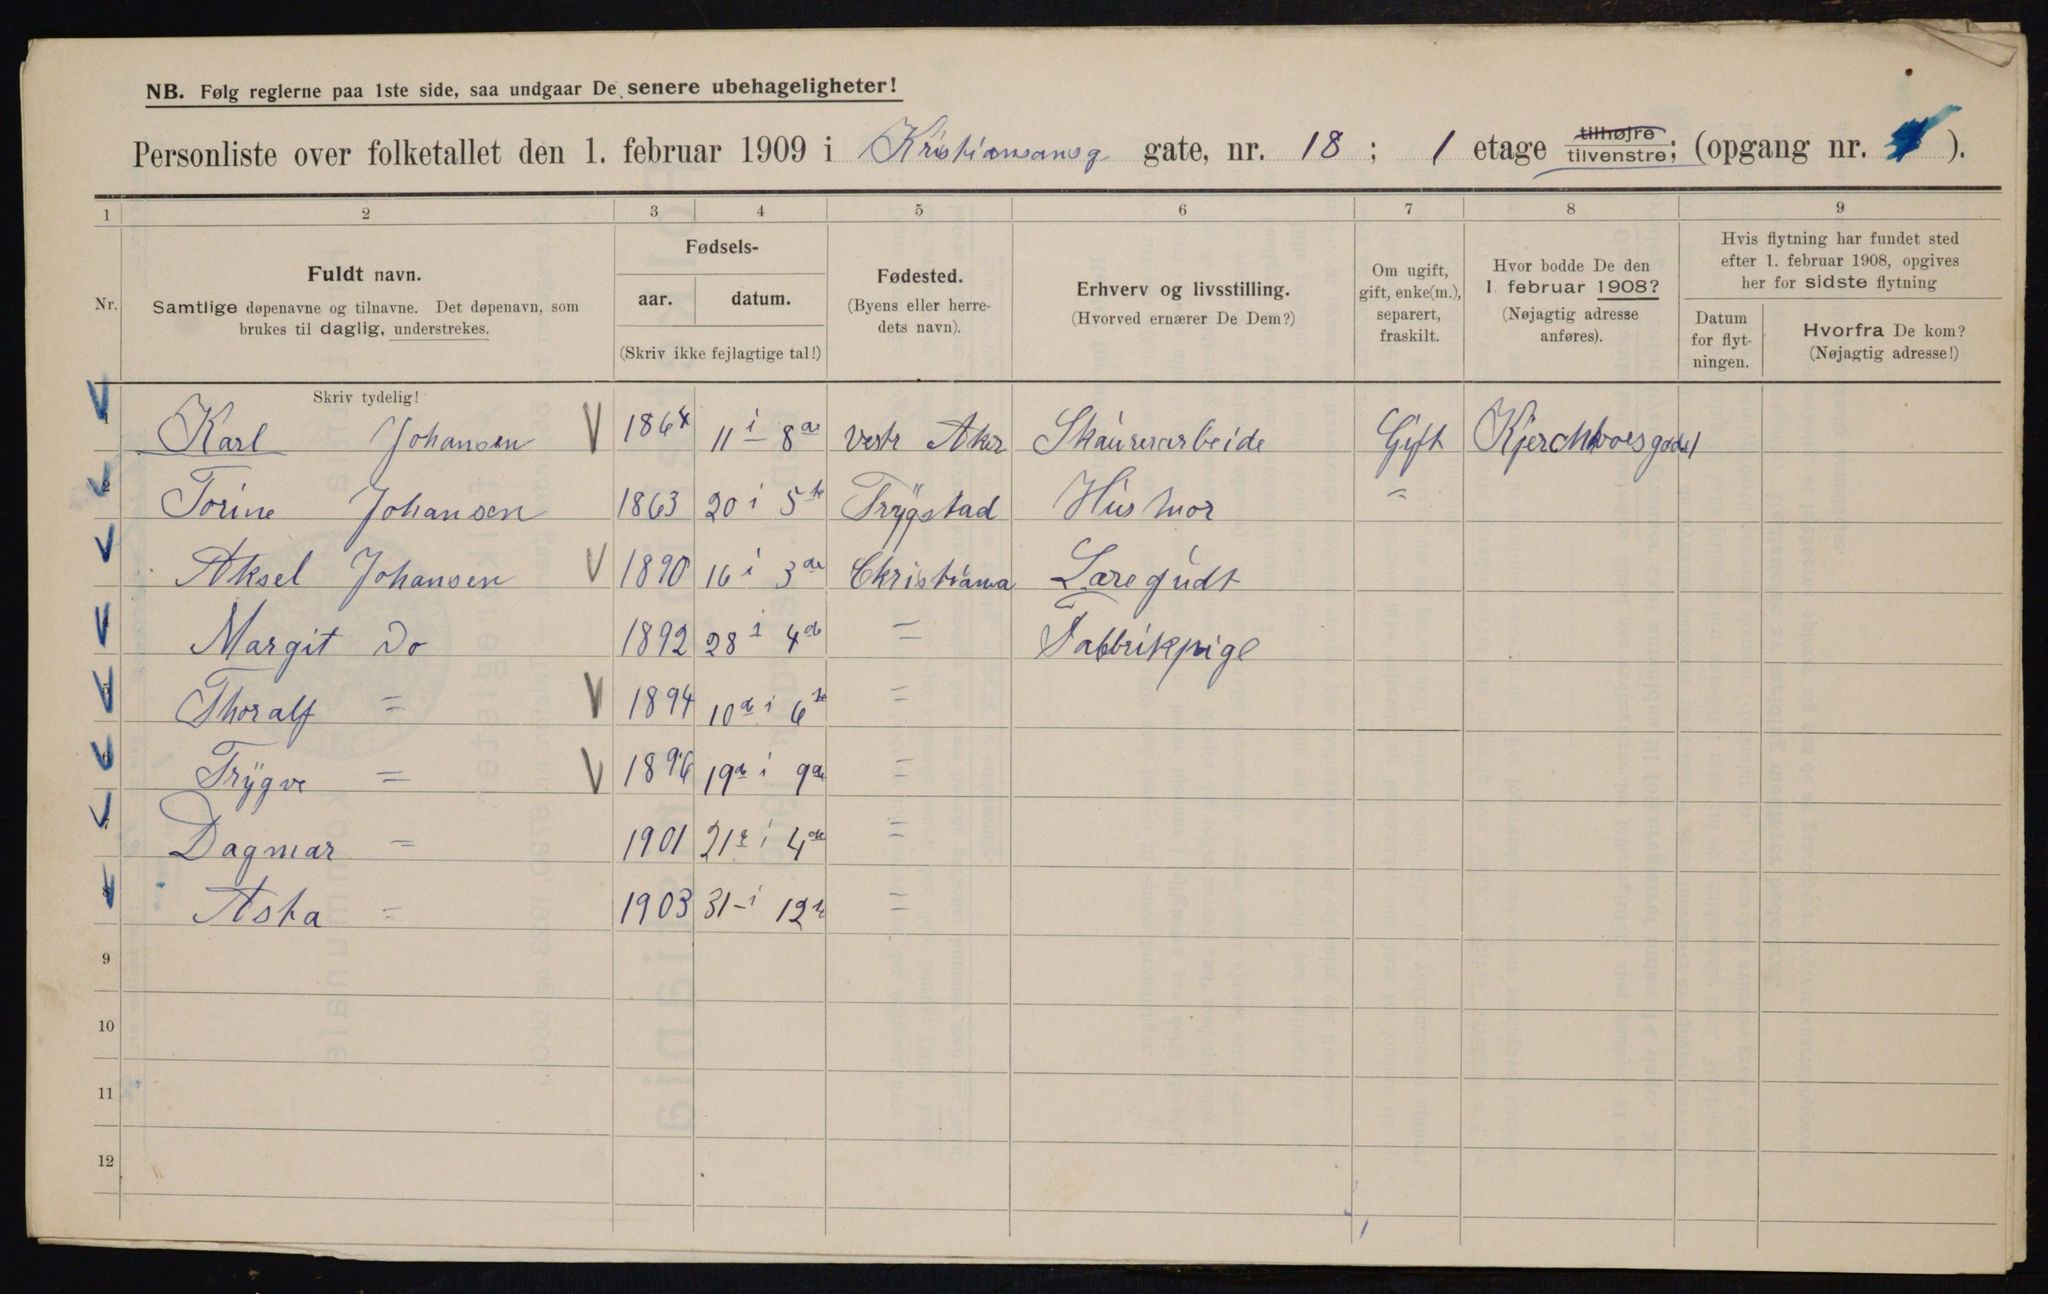 NB. Følg reglerne paa 1ste side, saa undgaar De senere ubehageligheter!
Personliste over folketallet den 1. februar 1909 i Kristiansansg gate, nr. 18 ; 1 etage tilhøjre tilvenstre; (opgang nr. ).
1 2 3 4 5 6 7 8 9
Nr.
Fuldt navn.
Samtlige døpenavne og tilnavne. Det døpenavn, som
brukes til daglig, understrekes.
Fødsels-
aar. datum.
(Skriv ikke fejlagtige tal!)
Fødested.
(Byens eller herre-
dets navn).
Erhverv og livsstilling.
(Hvorved ernærer De Dem?)
Om ugift,
gift, enke(m.),
separert,
fraskilt.
Hvor bodde De den
1. februar 1908?
(Nøjagtig adresse
anføres).
Hvis flytning har fundet sted
efter 1. februar 1908, opgives
her for sidste flytning
Datum
for flyt-
ningen.
Hvorfra De kom?
(Nøjagtig adresse!)
Skriv tydelig!
1 Karl Johansen 1864 11 i 8de Vestr Aker Skaurerarbeide Gift
2 Torine Johansen 1863 20 i 5te Trygstad Husmor "
Aksel Johansen 1890 16 i 3de Christiania Laregudt
Margit Do 1892 28 i 4de = Fabbrikpige
5 Thoralf = 1894 10de i 6te =
6 Trygve = 1896 19de i 9de =
Dagmar = 1901 21 i 4de =
8 Asta = 1903 31 - i 12te =
9
10
11
12